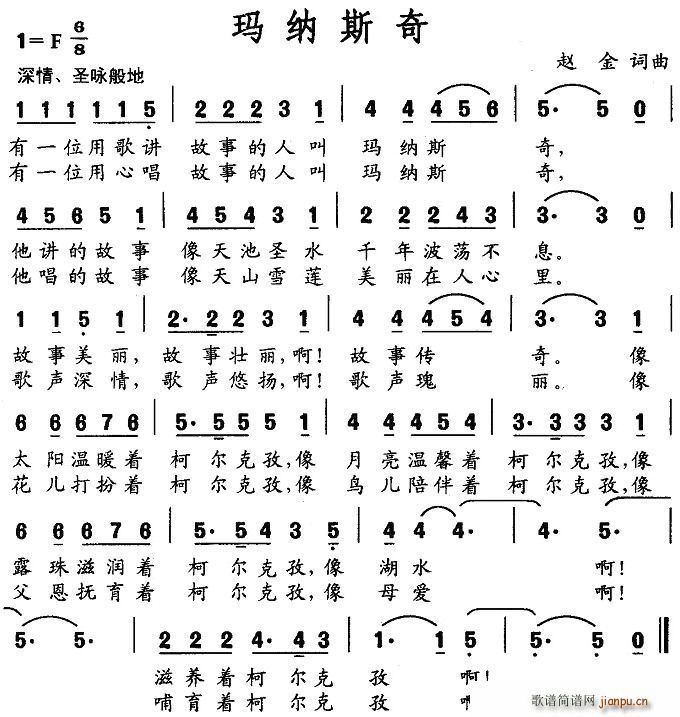 玛纳斯奇
1=F 6/8
赵 金 词曲
深情、圣咏般地
1 1 1 1 1 5 | 2 2 2 3 1 | 4 4 4 5 6 | 5· 5 0
有一位用歌讲 故事的人叫 玛纳斯 奇,
有一位用心唱 故事的人叫 玛纳斯 奇,
4 5 6 5 1 | 4 5 4 3 1 | 2 2 2 4 3 | 3· 3 0
他讲的故事 像天池圣水 千年波荡不 息。
他唱的故事 像天山雪莲 美丽在人心 里。
1 1 5 1 | 2· 2 2 3 1 | 4 4 4 5 4 | 3· 3 1
故事美丽, 故事壮丽,啊! 故事传 奇。 像
歌声深情, 歌声悠扬,啊! 歌声瑰 丽。 像
6 6 6 7 6 | 5· 5 5 5 1 | 4 4 4 5 4 | 3· 3 3 3 1
太阳温暖着 柯尔克孜,像 月亮温馨着 柯尔克孜,像
花儿打扮着 柯尔克孜,像 鸟儿陪伴着 柯尔克孜,像
6 6 6 7 6 | 5· 5 4 3 5 | 4 4 4· | 4· 5·
露珠滋润着 柯尔克孜,像 湖水 啊!
父恩抚育着 柯尔克孜,像 母爱 啊!
5· 5· | 2 2 2 4· 4 3 | 1· 1 5 | 5· 5 0
滋养着柯尔克 孜 啊!
哺育着柯尔克 孜
歌谱简谱网
jianpu.cn